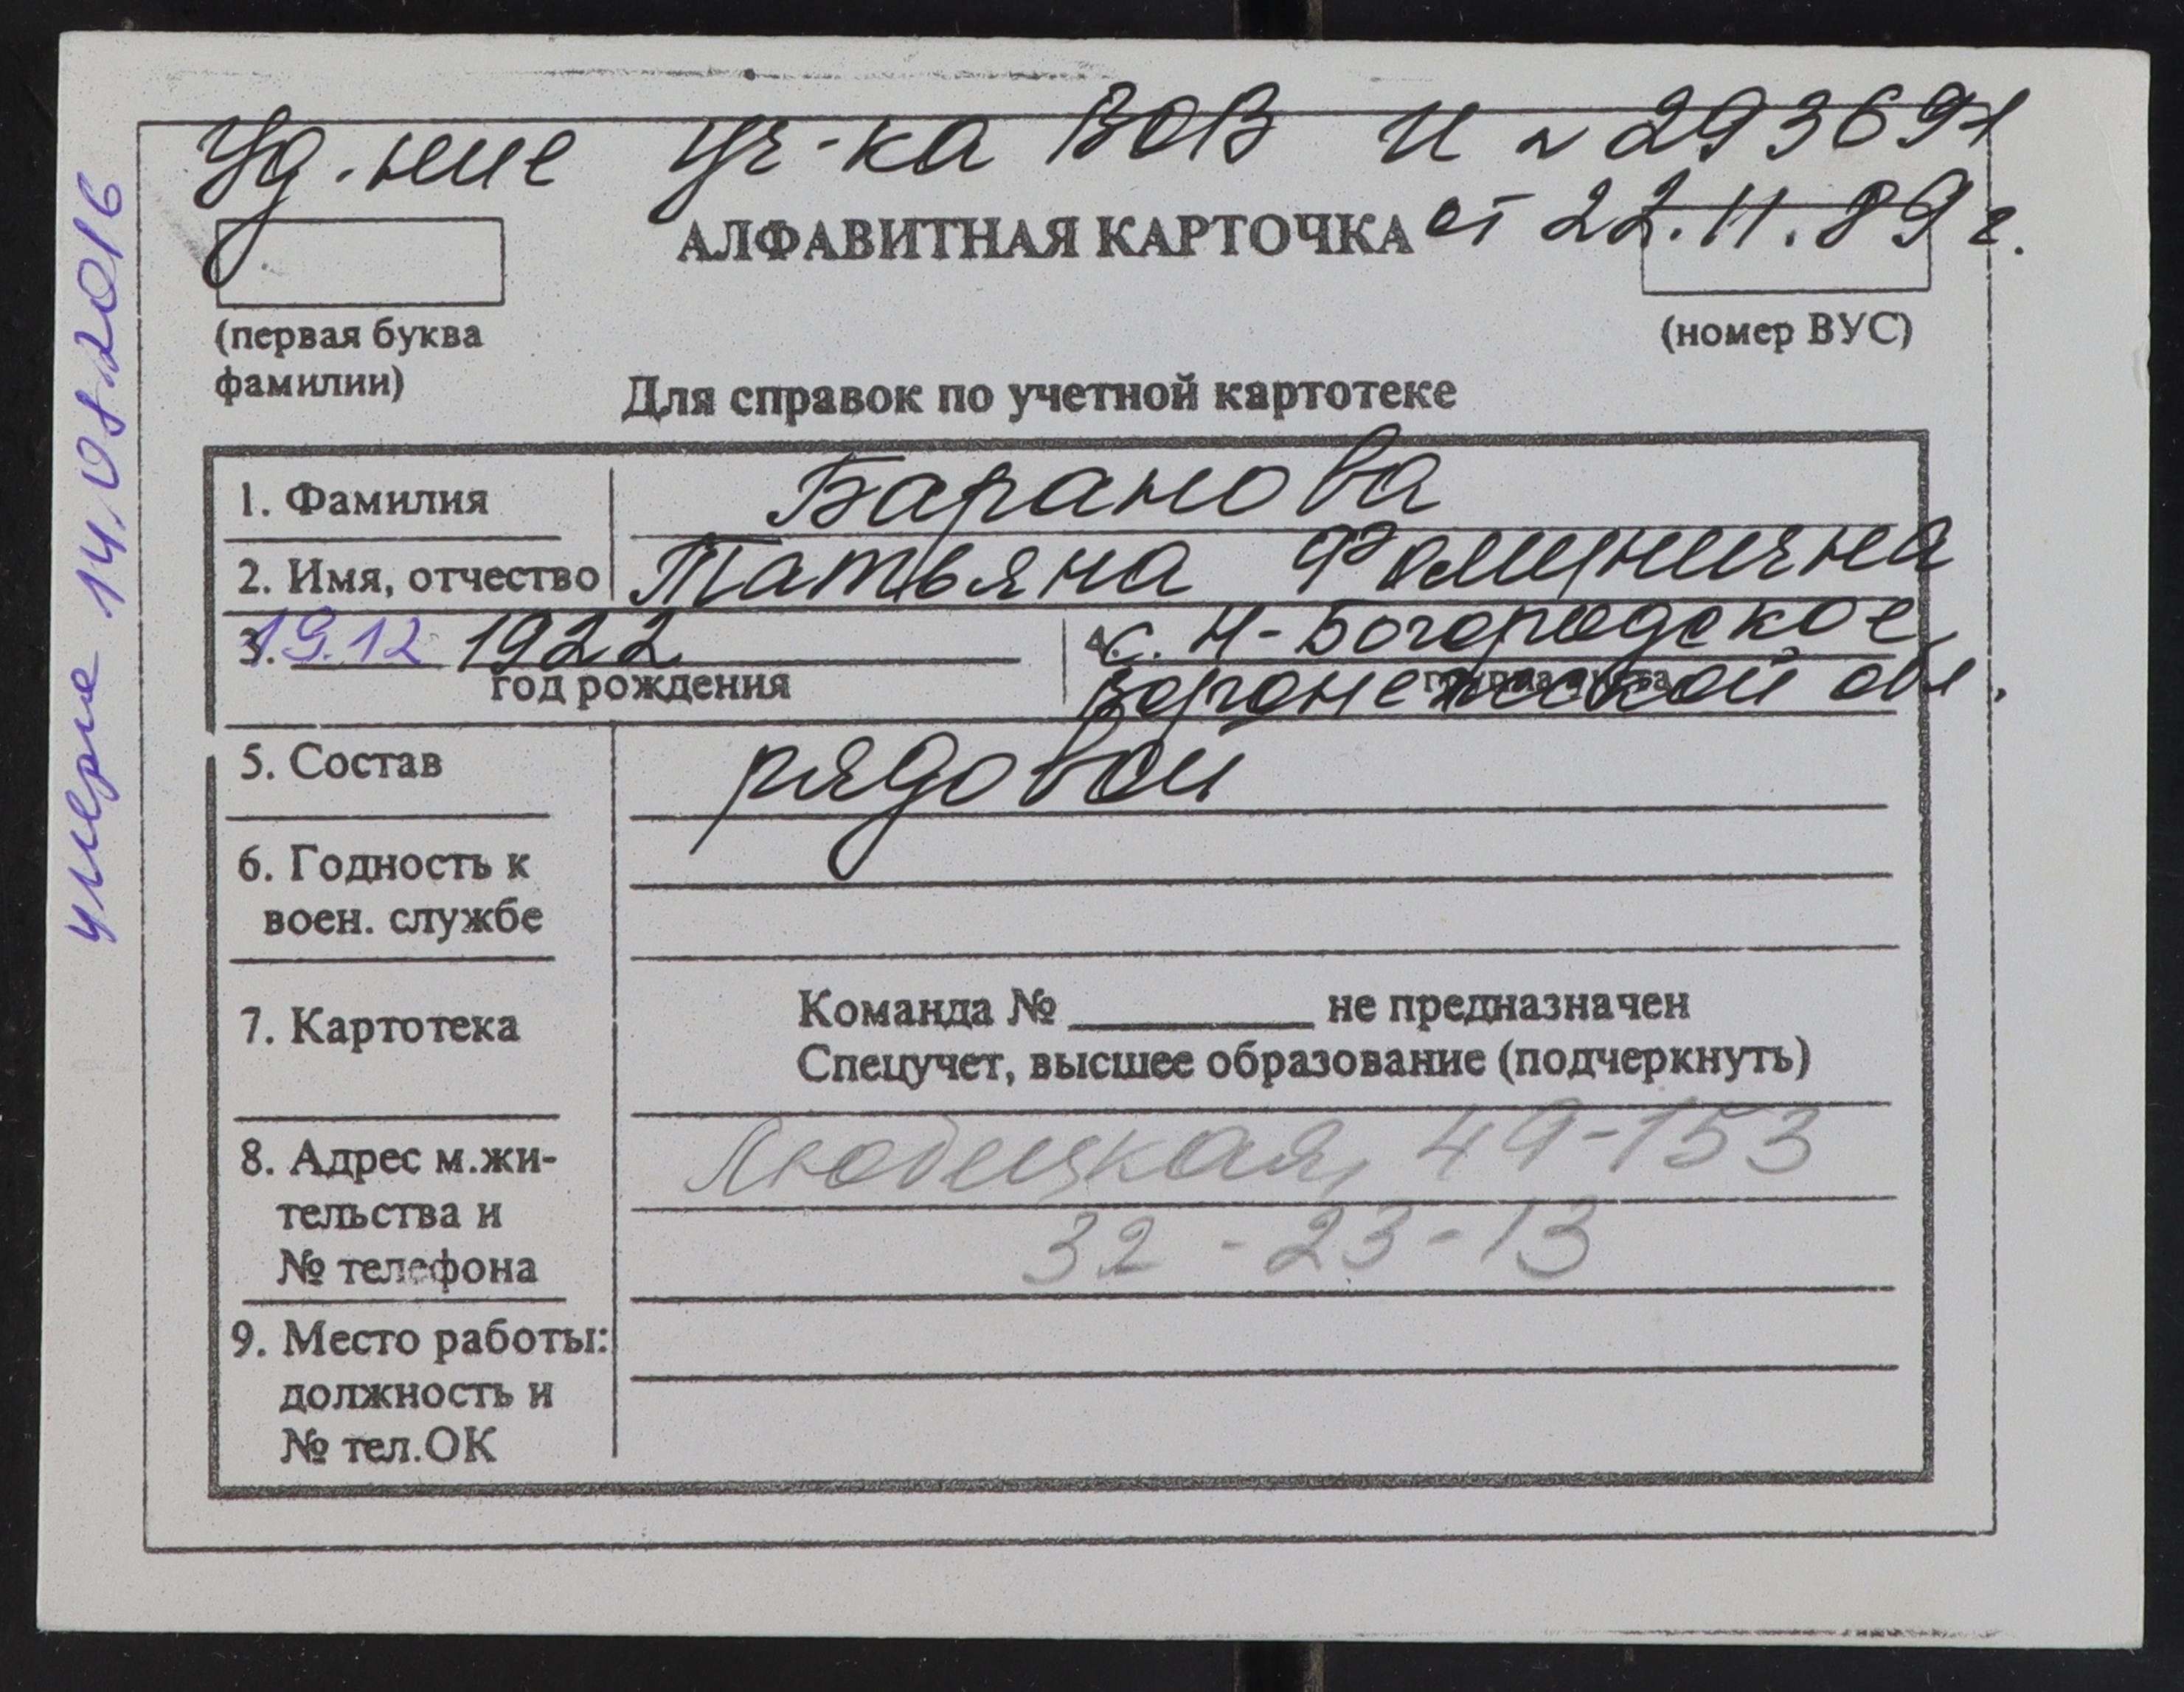 Уд.-ние уч-ка ВОВ И № 293691
от 22.11.89 г.
АЛФАВИТНАЯ КАРТОЧКА
(первая буква фамилии)
(номер ВУС)
Для справок по учетной картотеке
1. Фамилия Баранова
2. Имя, отчество Татьяна Фоминична
3. 19.12 1922 год рождения
4. с. Н-Богородское
Воронежской обл.
5. Состав рядовой
6. Годность к
воен. службе
7. Картотека
Команда № не предназначен
Спецучет, высшее образование (подчеркнуть)
8. Адрес м.жи-
тельства и
№ телефона
Любецкая, 49-153
32-23-13
9. Место работы:
должность и
№ тел.ОК
умерла 14.01.2016